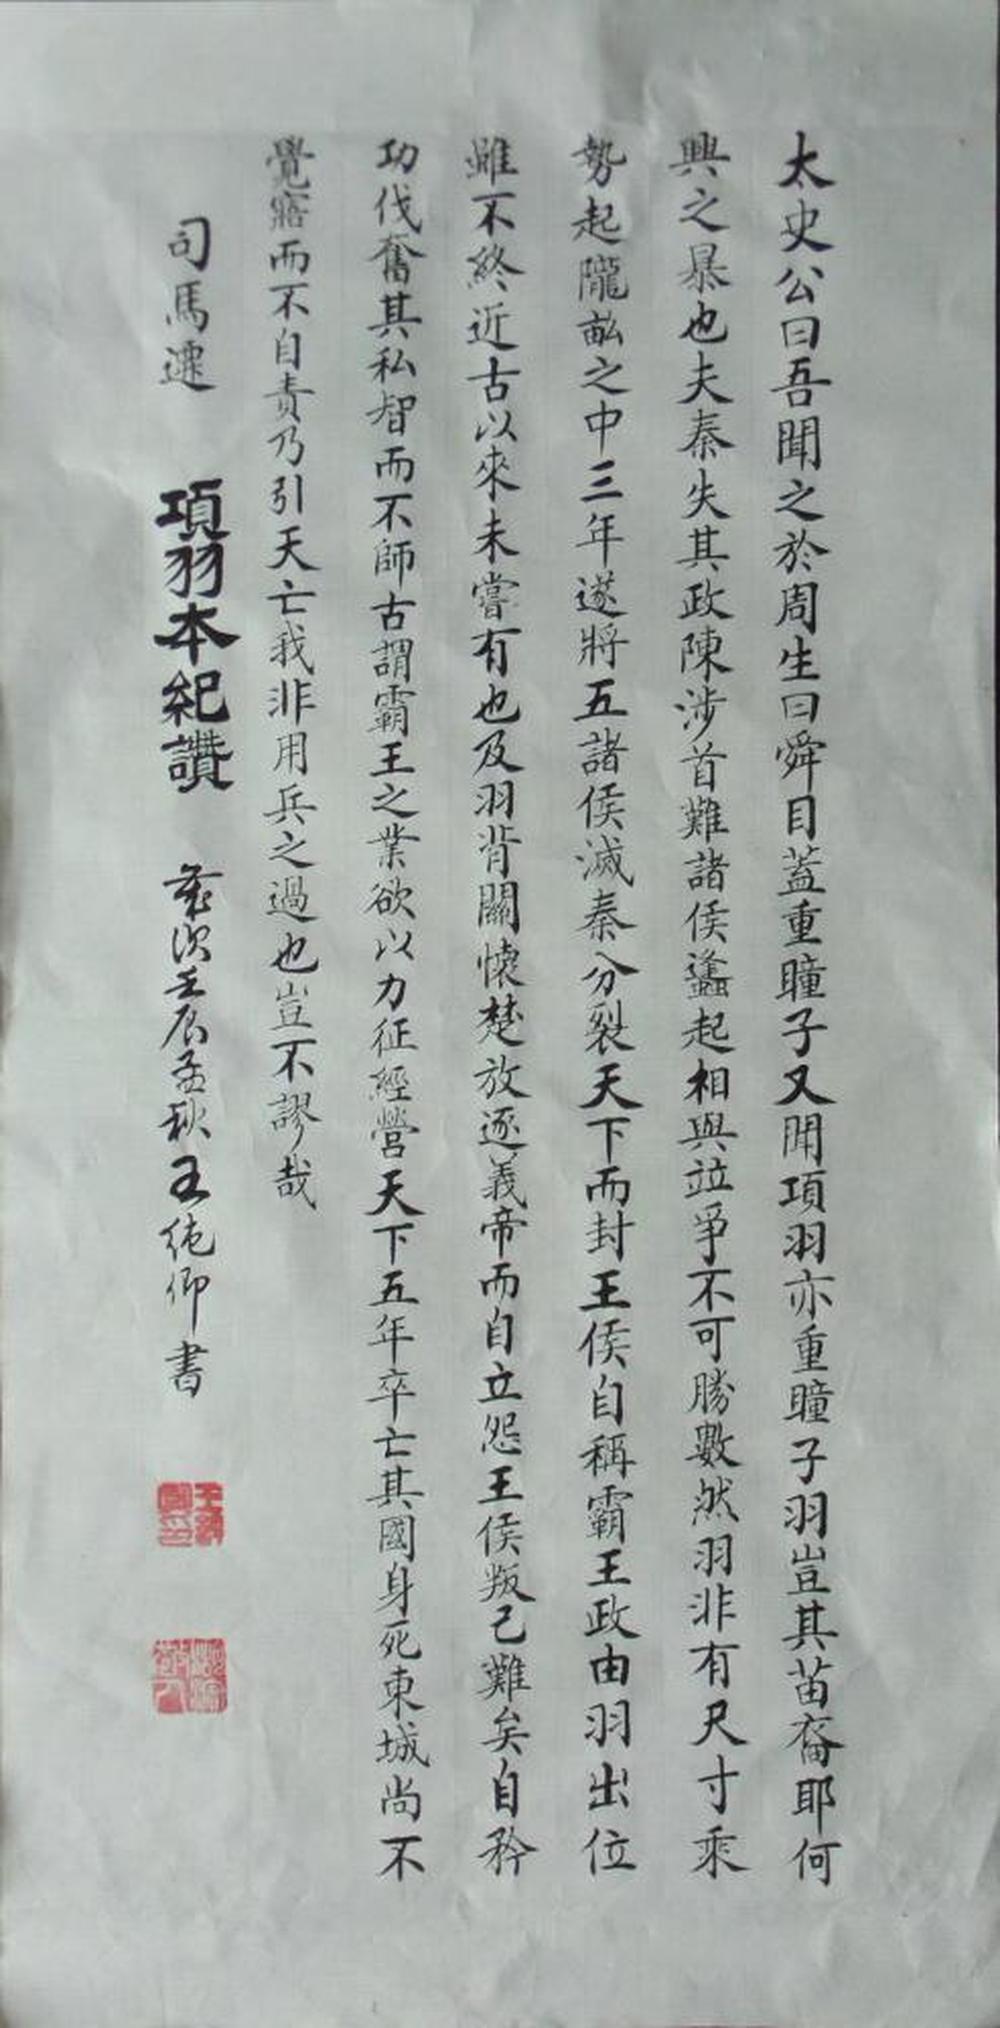 太史公曰吾聞之於周生曰舜目蓋重瞳子又聞項羽亦重瞳子羽豈其苗裔耶何
興之暴也夫秦失其政陳涉首難諸侯蠭起相與竝爭不可勝數然羽非有尺寸乘
勢起隴畝之中三年遂將五諸侯滅秦分裂天下而封王侯自稱霸王政由羽出位
雖不終近古以來未嘗有也及羽背關懷楚放逐義帝而自立怨王侯叛己難矣自矜
功伐奮其私智而不師古謂霸王之業欲以力征經營天下五年卒亡其國身死東城尚不
覺寤而不自責乃引天亡我非用兵之過也豈不謬哉
司馬遷 項羽本紀讚 歲次壬辰孟秋王純仰書